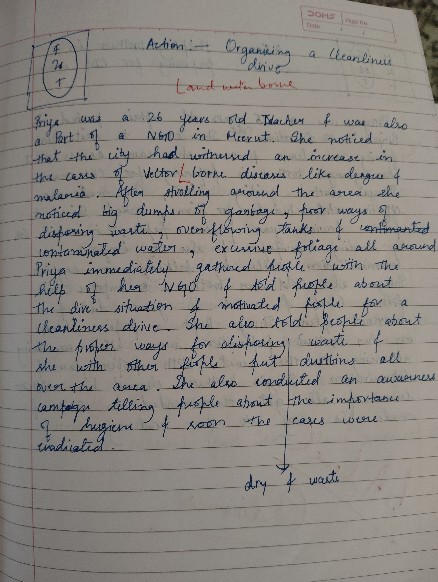 DOMS
Page No.
Date
F
26
+
Action :- Organising a cleanliness
drive
Land water borne
Priya was a 26 years old Teacher & was also
a Part of a NGO in Meerut. She noticed
that the city had witnessed an increase in
the cases of Vector/borne diseases like degree &
malaria. After strolling around the area she
noticed big dumps of garbage, poor ways of
disposing waste, overflowing tanks &
contaminated water, excessive foliage all around
Priya immediately gathered people with the
help of her NGO & told people about
the dire situation & motivated people for a
cleanliness drive. She also told people about
the proper ways for disposing waste &
she with other people put dustbins all
over the area. She also conducted an awareness
campaign telling people about the importance
of hygiene & soon the cases were
eradicated.
dry & waste